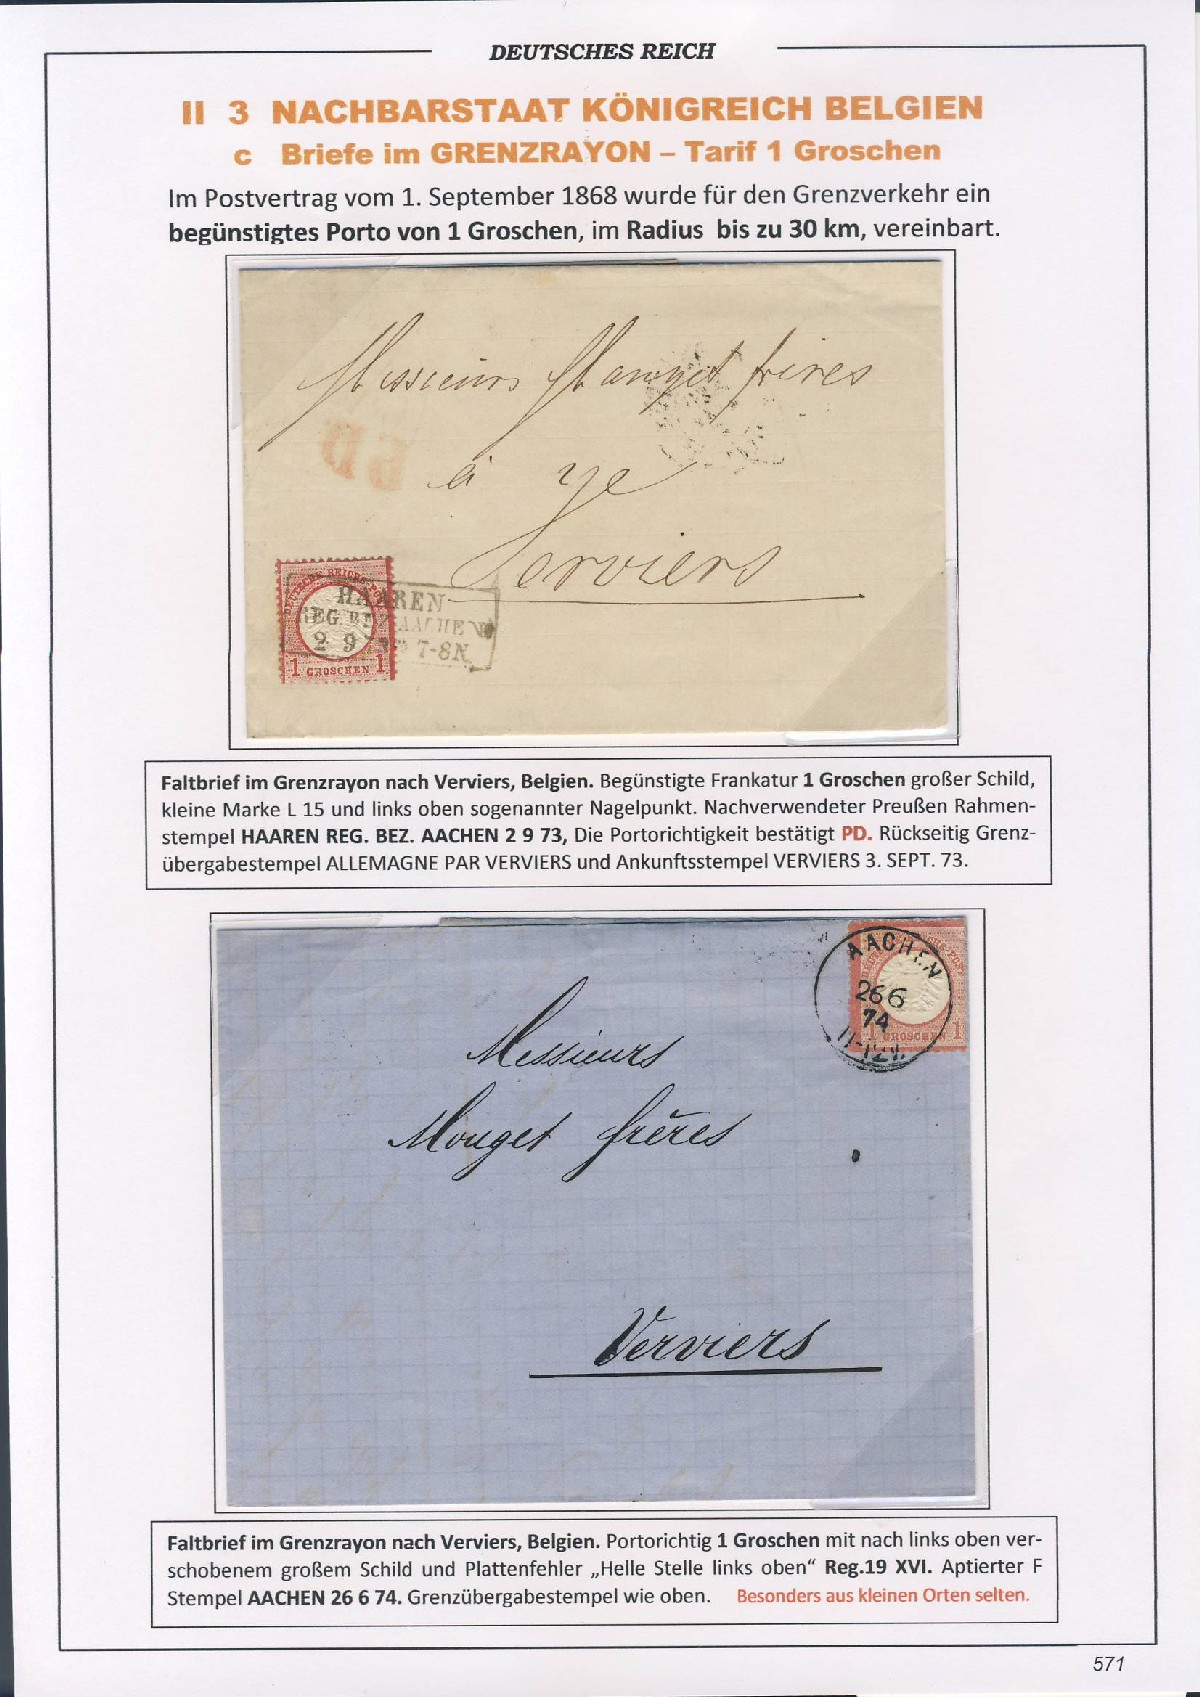 DEUTSCHES REICH
II 3 NACHBARSTAAT KÖNIGREICH BELGIEN
c Briefe im GRENZRAYON – Tarif 1 Groschen
Im Postvertrag vom 1. September 1868 wurde für den Grenzverkehr ein
begünstigtes Porto von 1 Groschen, im Radius bis zu 30 km, vereinbart.
Messieurs Mauget frères
PD
à
Verviers
DEUTSCHE REICHS-POST
HAAREN
REG. BEZ. AACHEN
2 9 73 7-8N
1 GROSCHEN 1
Faltbrief im Grenzrayon nach Verviers, Belgien. Begünstigte Frankatur 1 Groschen großer Schild,
kleine Marke L 15 und links oben sogenannter Nagelpunkt. Nachverwendeter Preußen Rahmen-
stempel HAAREN REG. BEZ. AACHEN 2 9 73, Die Portorichtigkeit bestätigt PD. Rückseitig Grenz-
übergabestempel ALLEMAGNE PAR VERVIERS und Ankunftsstempel VERVIERS 3. SEPT. 73.
AACHEN
26 6
74
1 GROSCHEN 1
Messieurs
Mouget frères
Verviers
Faltbrief im Grenzrayon nach Verviers, Belgien. Portorichtig 1 Groschen mit nach links oben ver-
schobenem großem Schild und Plattenfehler „Helle Stelle links oben“ Reg.19 XVI. Aptierter F
Stempel AACHEN 26 6 74. Grenzübergabestempel wie oben. Besonders aus kleinen Orten selten.
571